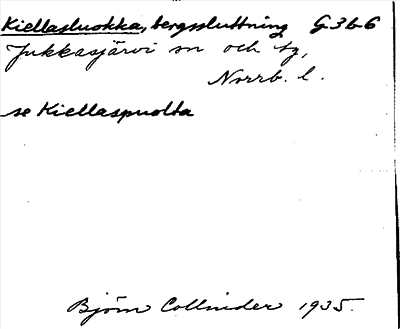 Kiellasluokka, bergssluttning G 36-6
Jukkasjärvi sn och tg,
Norrb. l.
se Kiellaspuolta
Björn Collinder 1935.